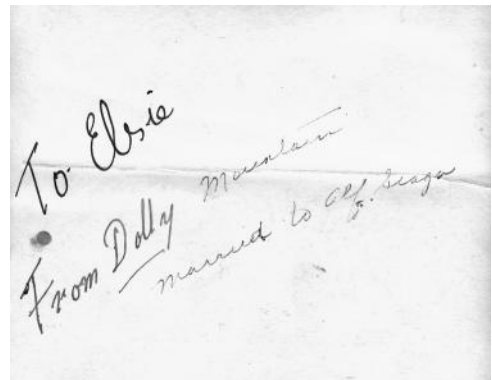 To Elsie
From Dolly Mountain
married to Alf.